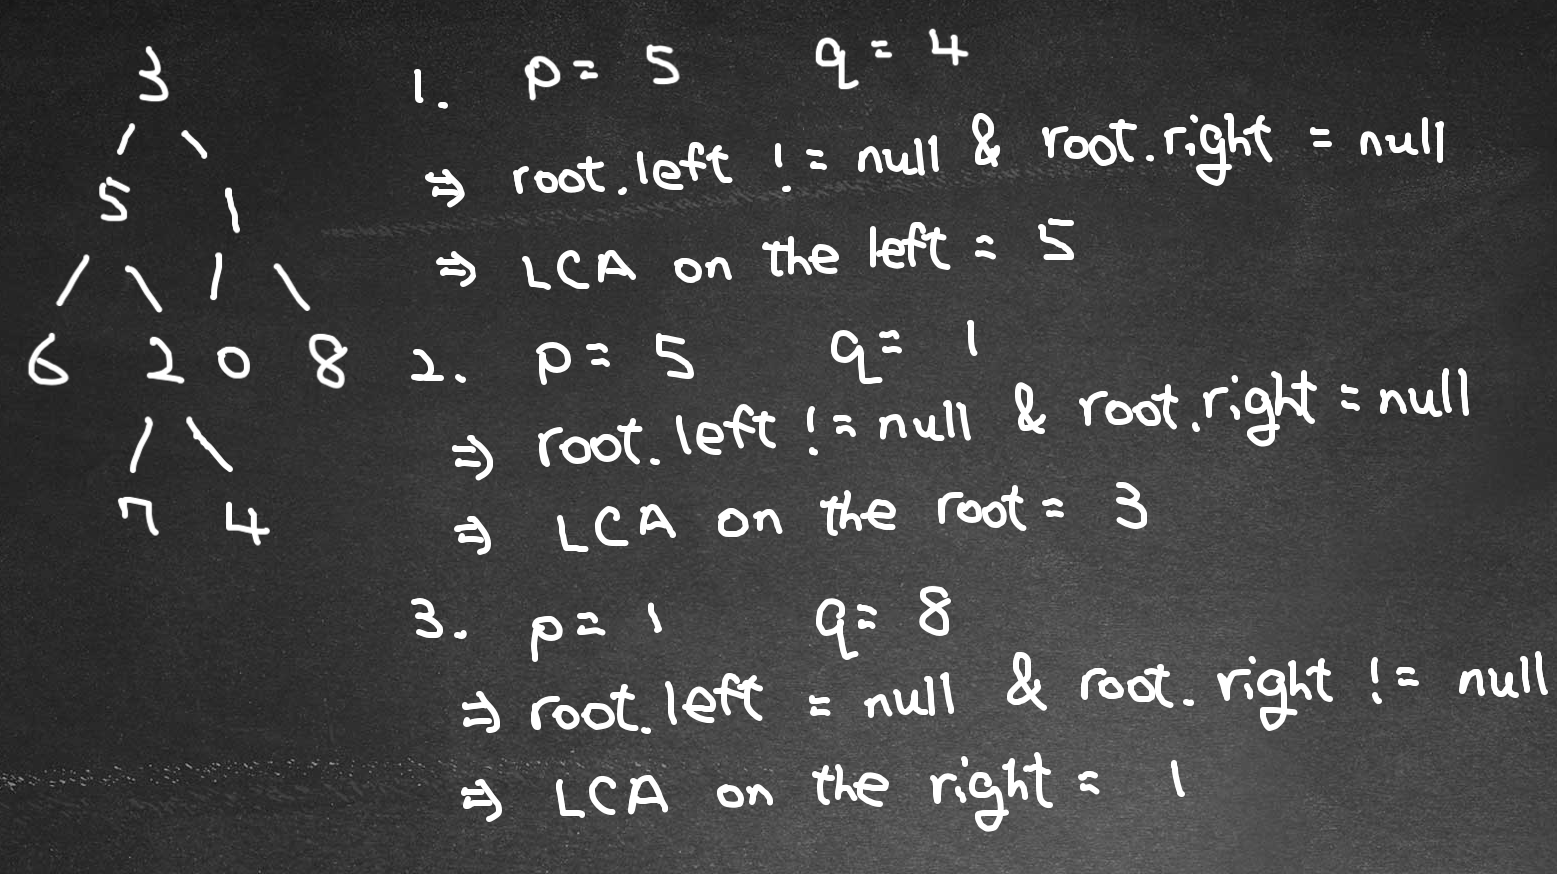 3
5 1
6 2 0 8
7 4
1. p = 5 q = 4
⇒ root.left != null & root.right = null
⇒ LCA on the left = 5
2. p = 5 q = 1
⇒ root.left != null & root.right = null
⇒ LCA on the root = 3
3. p = 1 q = 8
⇒ root.left = null & root.right != null
⇒ LCA on the right = 1